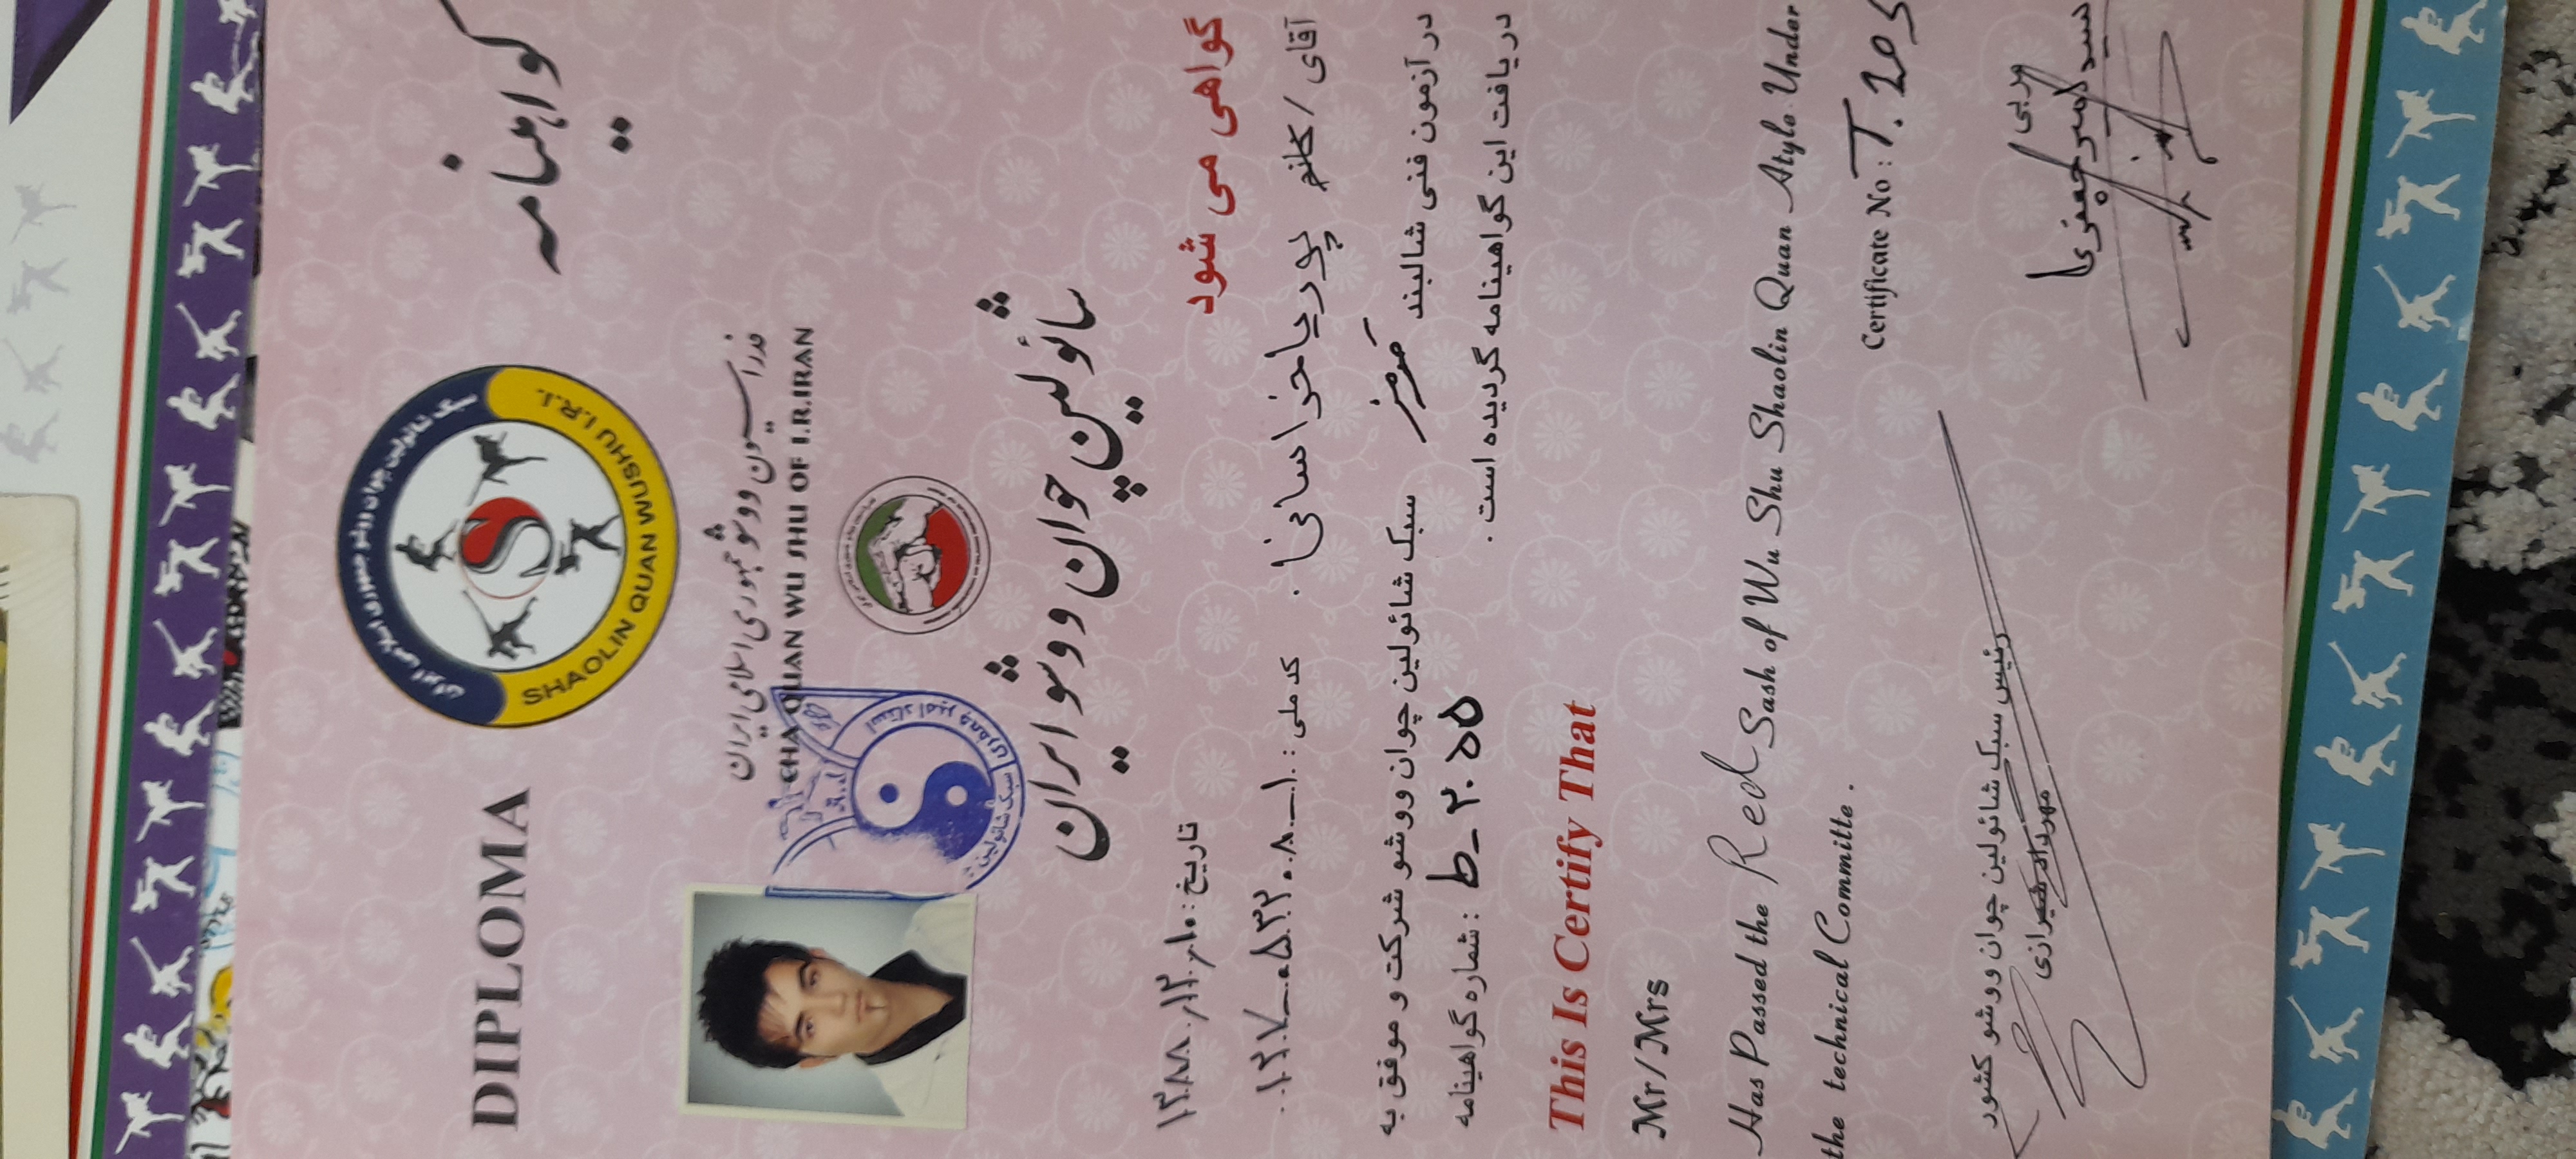 گواهینامه
DIPLOMA
سبک شائولین چوان ووشو جمهوری اسلامی ایران
SHAOLIN QUAN WUSHU I.R.I.
فدراسیون ووشو جمهوری اسلامی ایران
CHA QUAN WU SHU OF I.R.IRAN
شائولین چوان ووشو ایران
استاد امیر جعفری
سبک شائولین
گواهی می شود
تاریخ: ۱۳۸۸/۱۲/۱۰
آقای / خانم پوریا خراسانی کد ملی:
در آزمون فنی شالبند قرمز سبک شائولین چوان ووشو شرکت و موفق به
دریافت این گواهینامه گردیده است.
شماره گواهینامه: ط-۲۰۵۵
This Is Certify That
Mr/Mrs
Has Passed the Red Sash of Wu Shu Shaolin Quan Style Under
the technical Committe.
Certificate No:
مربی
سید امیر جعفری
رئیس سبک شائولین چوان ووشو کشور
مهرداد شیرازی